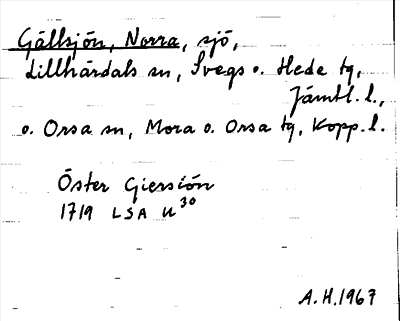 Gällsjön, Norra, sjö,
Lillhärdals sn, Svegs o. Hede tg,
Jämtl. l.,
o. Orsa sn, Mora o. Orsa tg, Kopp. l.
Öster Giersiön
1719 LSA U 30
A.H. 1967